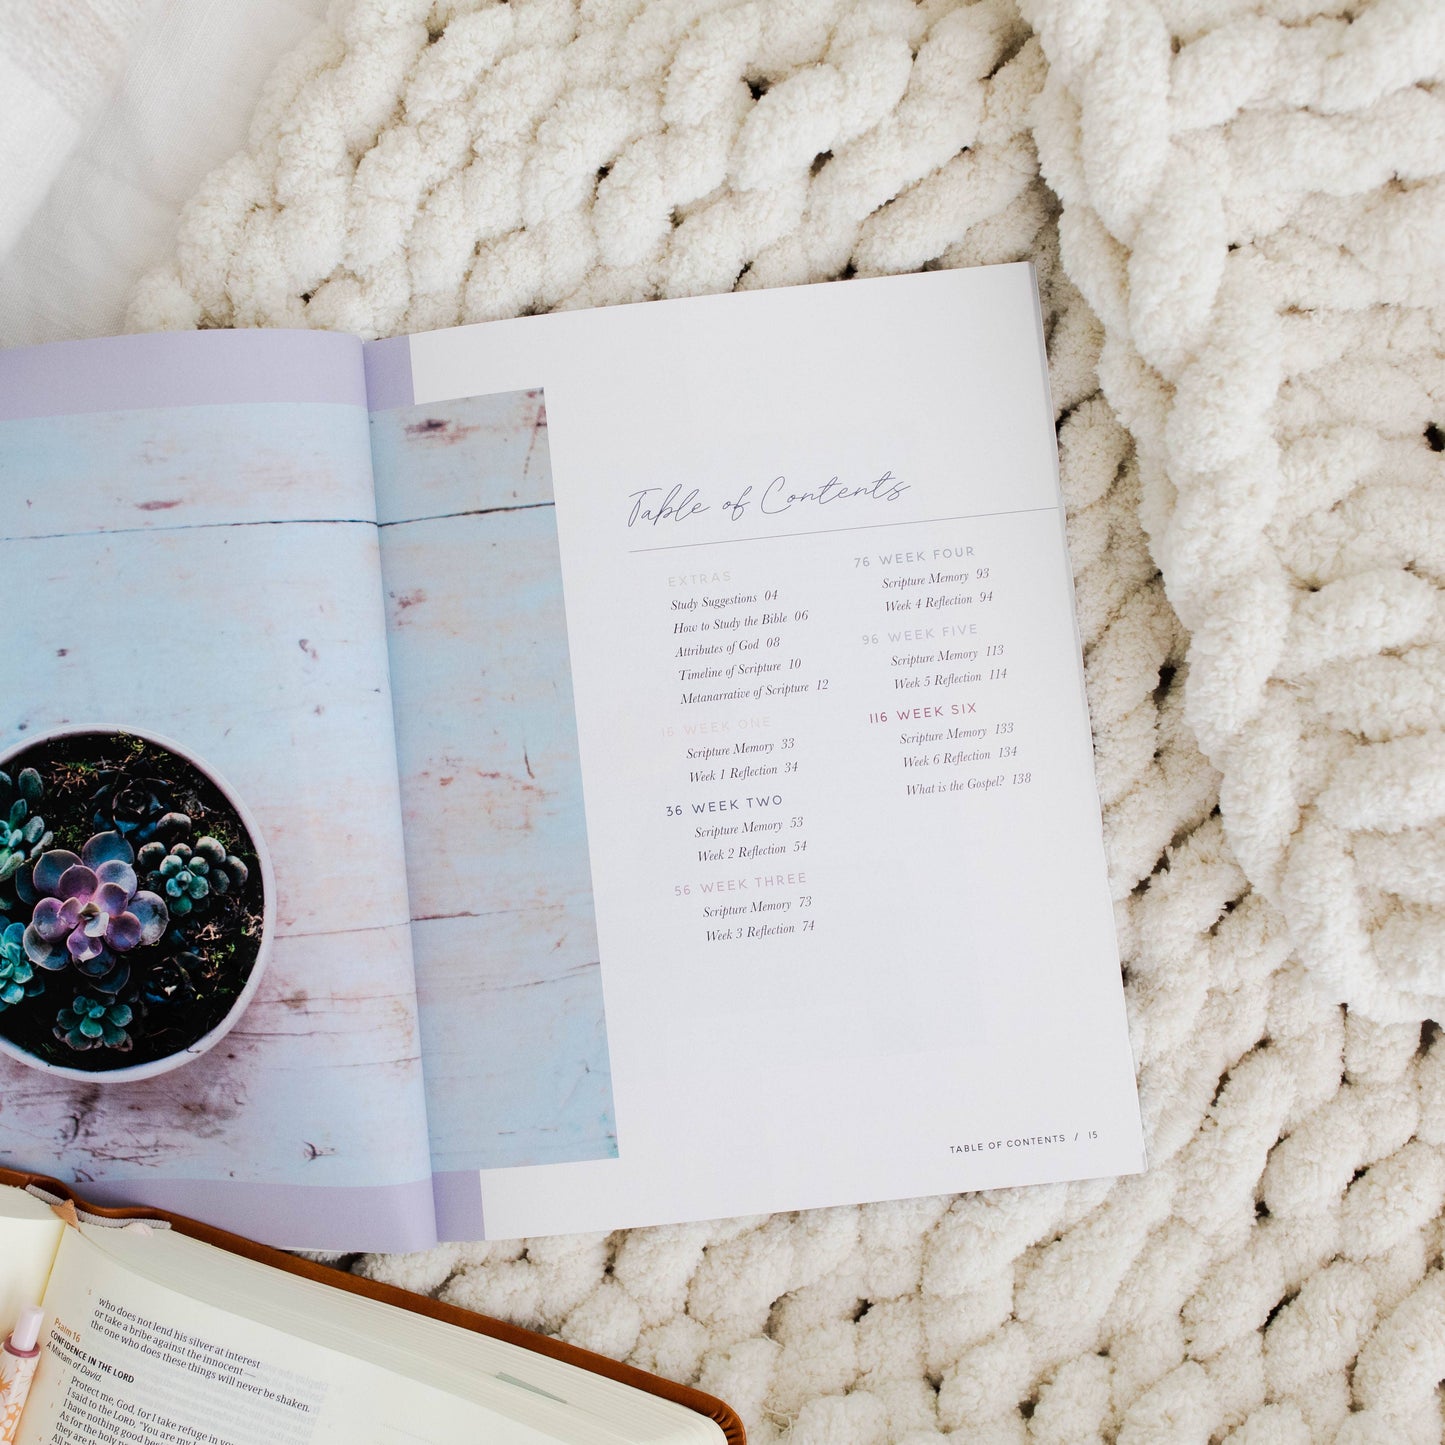 Table of Contents
EXTRAS
Study Suggestions 04
How to Study the Bible 06
Attributes of God 08
Timeline of Scripture 10
Metanarrative of Scripture 12
16 WEEK ONE
Scripture Memory 33
Week 1 Reflection 34
36 WEEK TWO
Scripture Memory 53
Week 2 Reflection 54
56 WEEK THREE
Scripture Memory 73
Week 3 Reflection 74
76 WEEK FOUR
Scripture Memory 93
Week 4 Reflection 94
96 WEEK FIVE
Scripture Memory 113
Week 5 Reflection 114
116 WEEK SIX
Scripture Memory 133
Week 6 Reflection 134
What is the Gospel? 138
TABLE OF CONTENTS / 15
who does not lend his silver at interest
or take a bribe against the innocent—
the one who does these things will never be shaken.
Psalm 16
CONFIDENCE IN THE LORD
A Miktam of David.
Protect me, God, for I take refuge in
I said to the LORD, "You are my
I have nothing good
As for the holy
they are
All